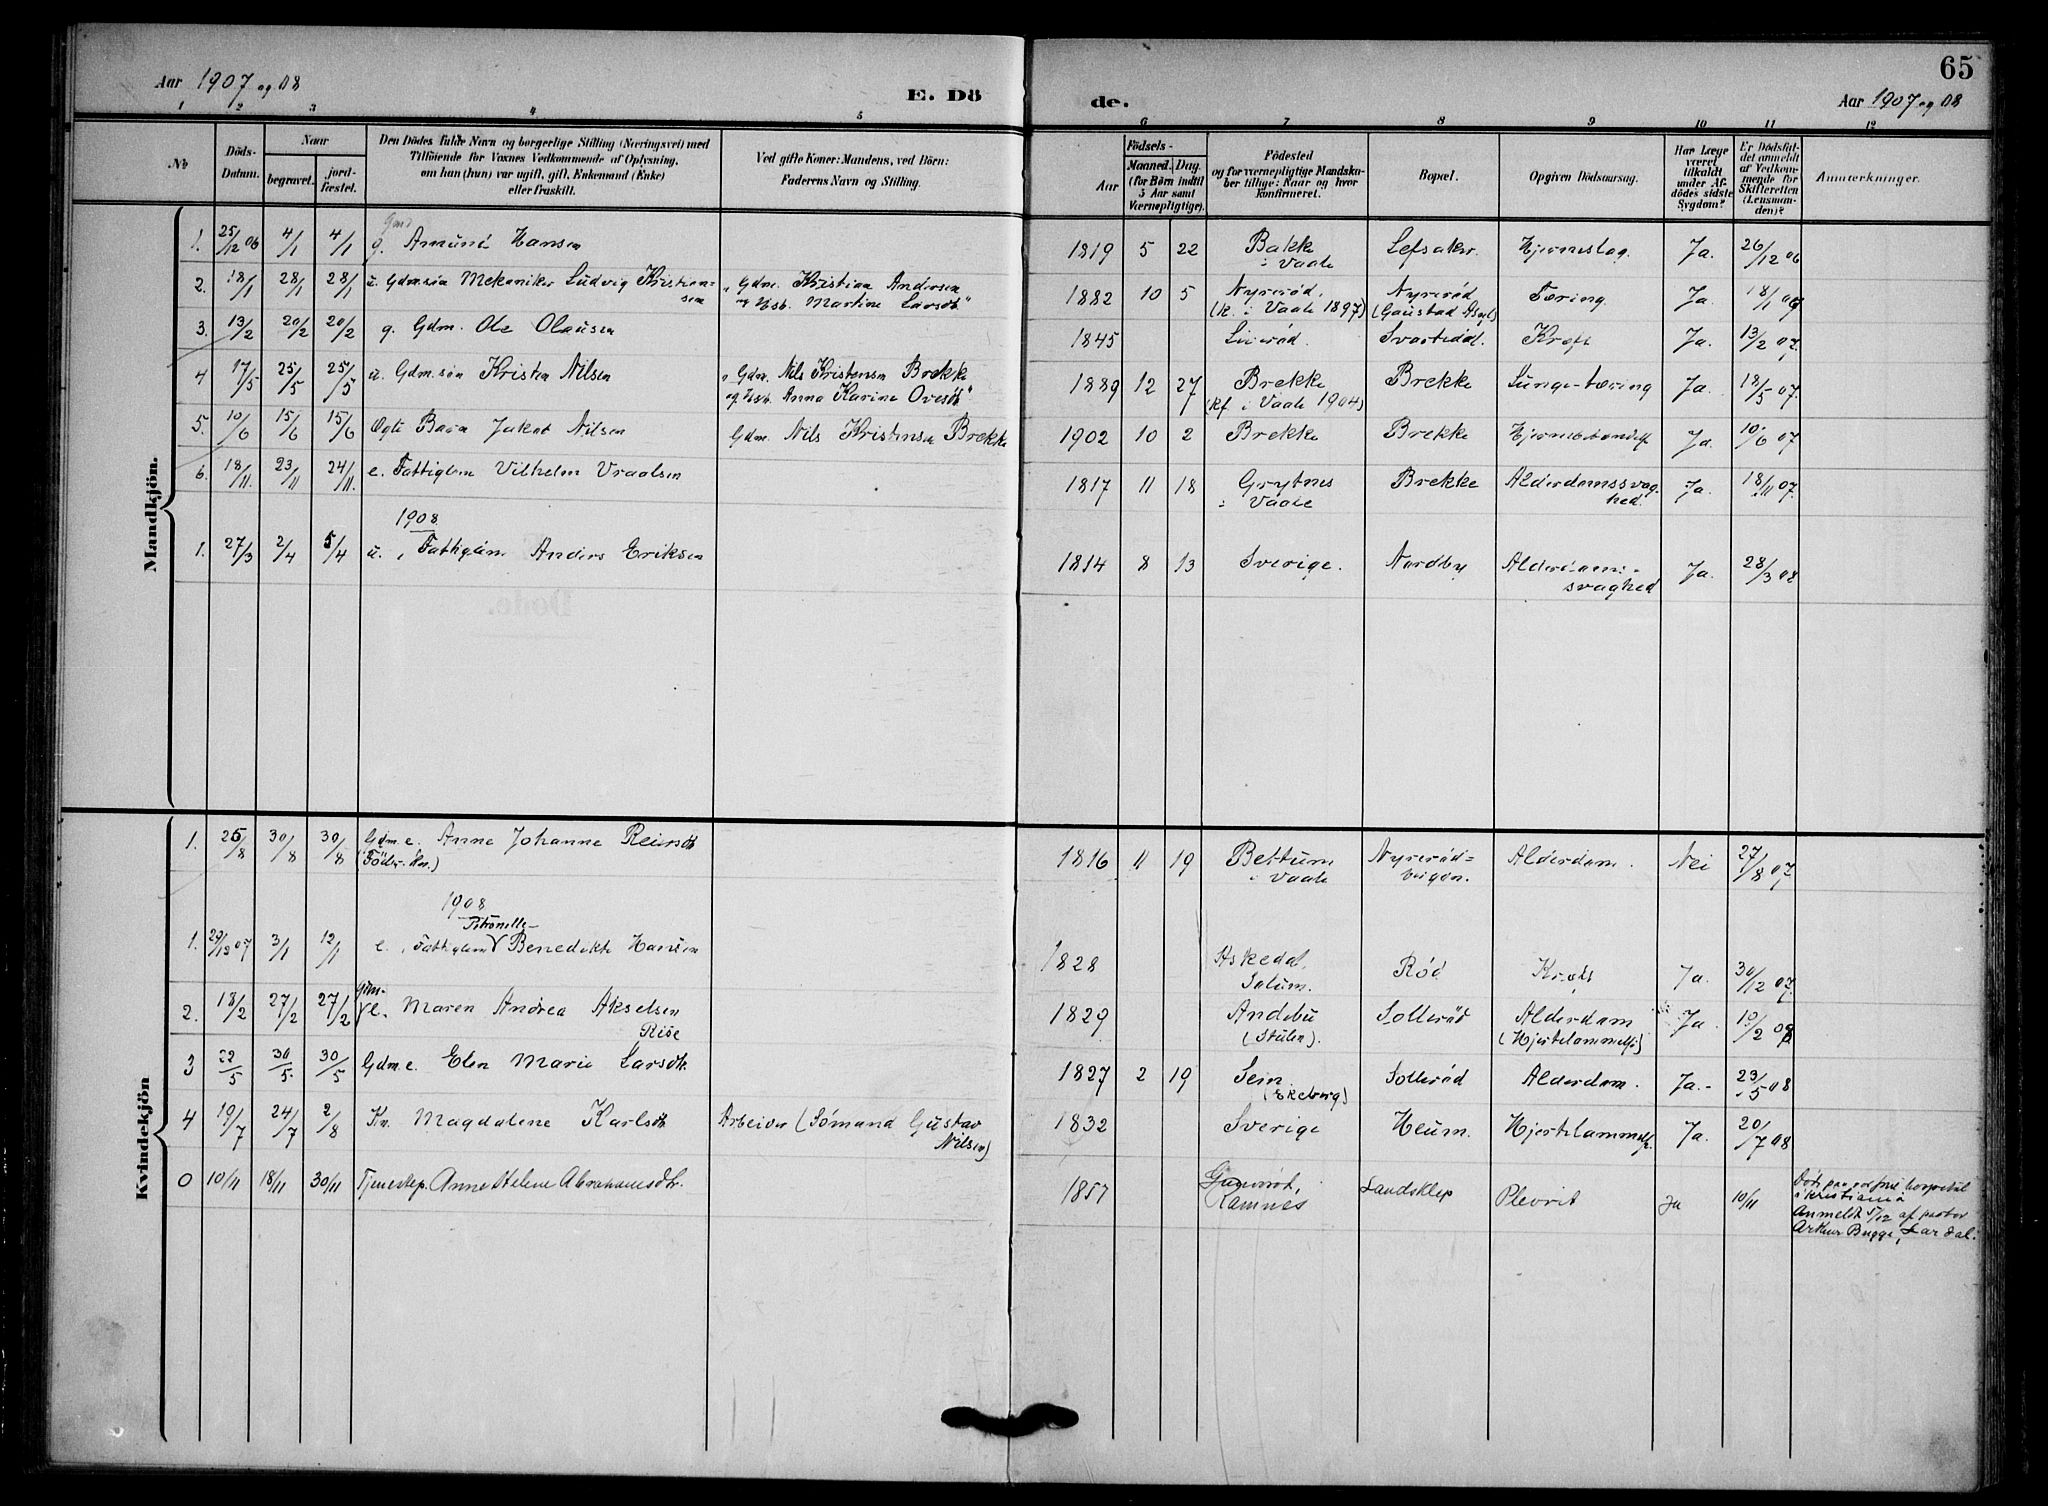 65
Aar 1907 og 08
E. Dö
de.
Aar 1907 og 08
1 2 3 4 5 6 7 8 9 10 11 12
No
Döds-
Datum.
Naar
begravet.
jord-
fæstet.
Den Dödes fulde Navn og borgerlige Stilling (Næringsvei) med
Tilföiende for Voxnes Vedkommende af Oplysning,
om han (hun) var ugift, gift, Enkemand (Enke)
eller fraskilt.
Ved gifte Koner: Mandens, ved Börn:
Faderens Navn og Stilling.
Födsels-
Aar
Maaned. Dag.
(for Börn indtil
5 Aar samt
Værnepligtige).
Födested
og for værnepligtige Mandska-
ber tillige: Naar og hvor
konfirmeret.
Bopæl.
Opgiven Dödsaarsag.
Har Læge
været
tilkaldt
under Af-
dödes sidste
Sygdom?
Er Dödsfal-
det anmeldt
af Vedkom-
mende for
Skifteretten
(Lensman-
den)?
Anmærkninger.
Mandkjön.
1. 25/12 06 4/1 4/1 g. Gmd. Amund Hansen 1819 5 22 Bakke i Vaale Lefsaker. Hjerneslag. Ja. 26/12 06
2. 18/1 28/1 28/1 u. Gdm.søn Mekaniker Ludvig Kristian-
sen
"Gdm. Kristian Andersen
og Hst. Martine Larsdt" 1882 10 5 Nyrerød. (k. i Vaale 1897) Nyrerød (Gaustad Asyl) Tæring. Ja. 18/1
3. 13/2 20/2 20/2 g. Gdm. Ole Olausen 1845 Svartedal. Kræft Ja. 13/2 07.
4 17/5 25/5 25/5 u. Gdm.søn Kristen Nilsen
"Gdm. Nils Kristensen Brekke
og Hst. Anna Karine Ovesdt" 1889 12 27 Brekke (kf. i Vaale 1904) Brekke Lunge-tæring Ja. 18/5 07.
5. 10/6 15/6 15/6 Ægte Barn Jakob Nilsen Gdm. Nils Kristensen Brekke 1902 10 2 Brekke Brekke Ja. 10/6 07
6. 18/11. 23/11 24/11. e. Fattiglem Vilhelm Vraalsen 1817 11 18 Grytnes i Vaale Brekke Alderdomssvag-
hed. Ja. 18/11 07.
1908.
1. 27/3 2/4 5/4 u. Fattiglem Anders Eriksen 1814 8 13 Sverige. Nordby Alderdoms-
svaghed Ja. 28/3 08
Kvindekjön
1. 26/8 30/8 30/8 Gdm e. Anne Johanne Reiersdt
1816 11 19 Bettum i Vaale Nyrerød-
Alderdom. Nei 27/8 07.
1908
Petronelle
1. 29/12 07 3/1 12/1 e. Fattiglem Benedikte Hansen 1828 Askedal, Solum. Rød Kræft Ja. 30/12 07.
2. 18/2 27/2 27/2 Gdm. e. Maren Andrea Akselsen
Rise
1829 Andebu (Stulen). Sollerød Alderdom Ja. 19/2 08
3 22/5 30/5. 30/5 Gdm e. Elen Marie Larsdtr. 1827 2 19 Sem. (Ekeberg) Sollerød Alderdom. Ja. 23/5 08
4 19/7 24/7 2/8 Kn. Magdalene Karlsdt Arbeider (Sømand Gustav
Nilsen)
1832 Sverige Heum. Ja. 20/7 08
0 10/11 18/11 30/11 Tjenestep. Anne Helene Abrahamsdtr. 1857 Ramnes Landsklep Plevrit Ja 10/11
Død paa hospital
i Kristiania
Anmeldt 5/12 af pastor
Arthur Bugge, Lardal.